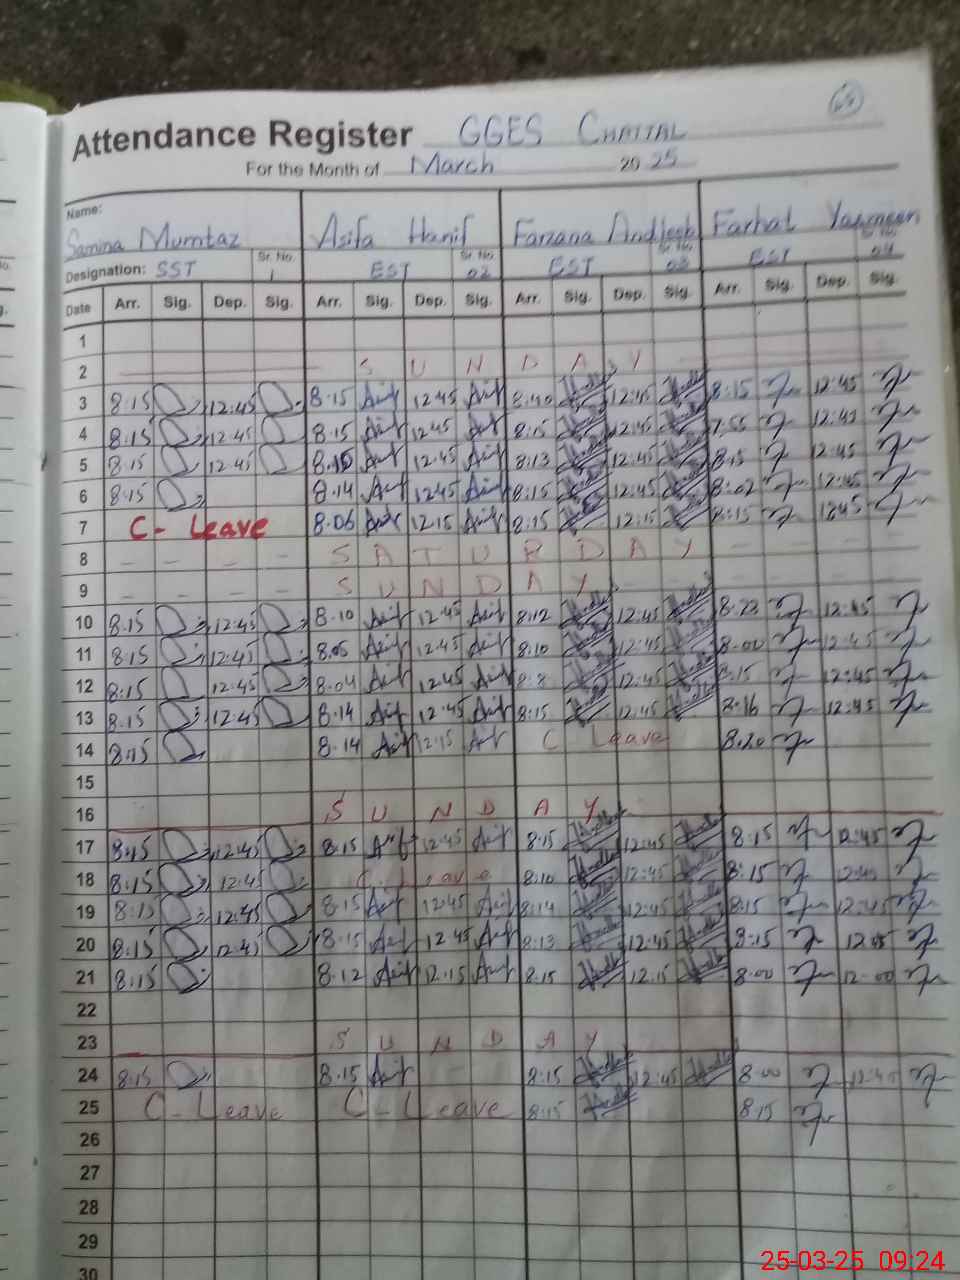 Attendance Register GGES CHATTAL
For the Month of March 2025
Name:
Samina Mumtaz Asifa Hanif Farzana Andleeb Farhat Yasmeen
Designation: SST Sr. No. 1 EST Sr. No. 02 EST Sr. No. 03 EST Sr. No. 04
Date Arr. Sig. Dep. Sig. Arr. Sig. Dep. Sig. Arr. Sig. Dep. Sig. Arr. Sig. Dep. Sig.
1
2 SUNDAY
3 8:15 12:45 8:15 12:45 8:40 12:45 8:15 12:45
4 8:15 12:45 8:15 12:45 8:15 12:45 7:55 12:45
5 8:15 12:45 8:15 12:45 8:13 12:45 8:15 12:45
6 8:15 8:14 12:45 8:15 12:45 8:02 12:45
7 C- Leave 8:06 12:15 8:15 12:15 8:15 1245
8 - - - - SATURDAY - - - -
9 - - - - SUNDAY - - - -
10 8:15 12:45 8:10 12:45 8:12 12:45 8:22 12:45
11 8:15 12:45 8:05 12:45 8:10 12:45 8:00 12:45
12 8:15 12:45 8:04 12:45 8:8 12:45 8:15 12:45
13 8:15 12:45 8:14 12:45 8:15 12:45 8:16 12:45
14 8:15 8:14 12:15 C Leave 8:20
15
16 SUNDAY
17 8:15 12:45 8:15 12:45 8:15 12:45 8:15 12:45
18 8:15 12:45 C. Leave 8:10 12:45 8:15 12:45
19 8:15 12:45 8:15 12:45 8:14 12:45 8:15 12:45
20 8:15 12:45 8:15 12:45 8:13 12:45 8:15 12:45
21 8:15 8:12 12:15 8:15 12:15 8:00 12:00
22
23 SUNDAY
24 8:15 8:15 8:15 12:45 8:00 12:45
25 C-Leave C-Leave 8:15 8:15
26
27
28
29
30
25-03-25 09:24